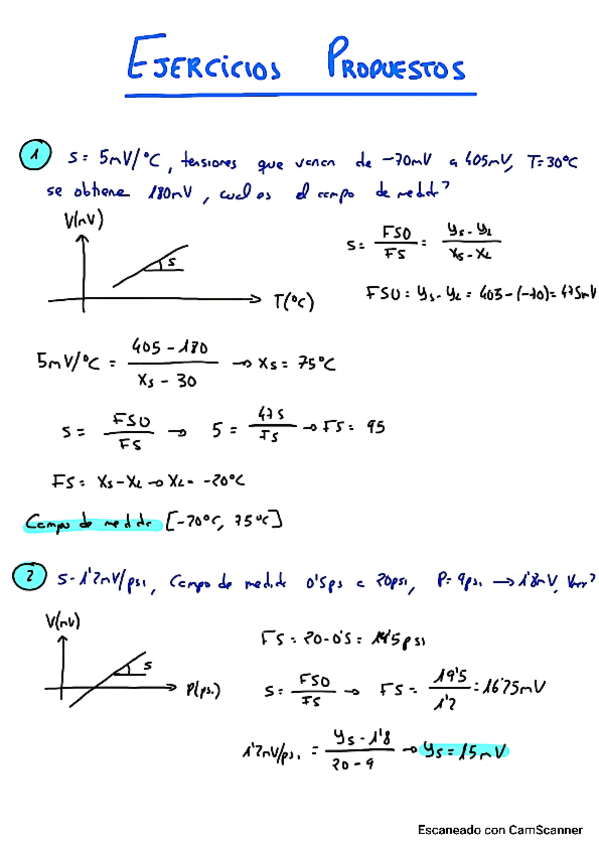 EJERCICIOS PROPUESTOS
1 S = 5mV/°C, tensiones que varian de -70mV a 405mV, T=30°C
se obtiene 180mV, cual es el campo de medida?
V(mV)
S
T(°C)
S = FSO / FS = (ys - yL) / (xs - xL)
FSO = ys - yL = 403 - (-70) = 475mV
5mV/°C = (405 - 180) / (xs - 30) → xs = 75°C
S = FSO / FS → 5 = 475 / FS → FS = 95
FS = xs - xL → xL = -20°C
Campo de medida [-20°C, 75°C]
2 S = 1'2mV/psi, Campo de medida 0'5psi a 20psi, P = 9psi → 1'8mV,
V(mV)
S
P(psi)
FS = 20 - 0'5 = 19'5psi
S = FSO / FS → FS = 19'5 / 1'2 = 16'25mV
1'2mV/psi = (ys - 1'8) / (20 - 9) → ys = 15mV
Escaneado con CamScanner